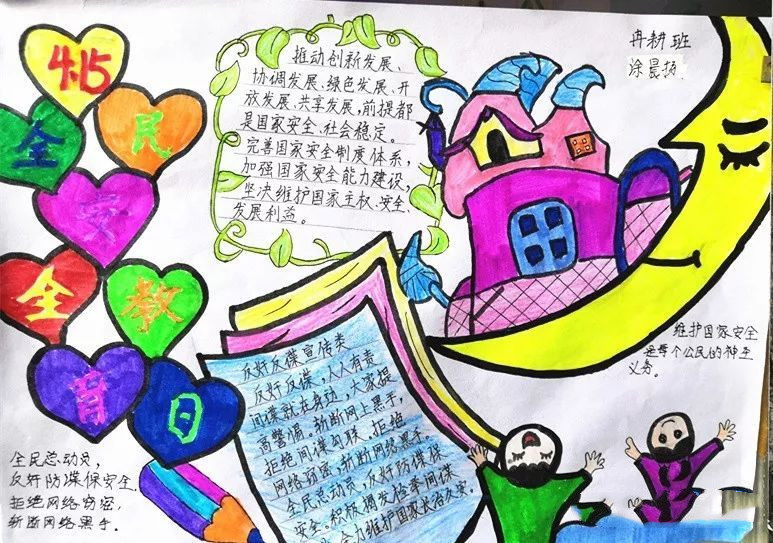 4·15
全民
安
全教
育日
推动创新发展、
协调发展、绿色发展、开
放发展、共享发展,前提都
是国家安全、社会稳定。
完善国家安全制度体系,
加强国家安全能力建设,
坚决维护国家主权、安全、
发展利益。
冉耕班
涂晨扬
维护国家安全
是每个公民的神圣
义务。
反奸反谍宣传类
反奸反谍,人人有责
间谍就在身边,大家提
高警惕。斩断网上黑手,
拒绝间谍勾联。拒绝
网络窃密,斩断网络黑手。
全民总动员,反奸防谍保
安全。积极揭发检举间谍
合力维护国家长治久安。
全民总动员,
反奸防谍保安全.
拒绝网络窃密,
斩断网络黑手。